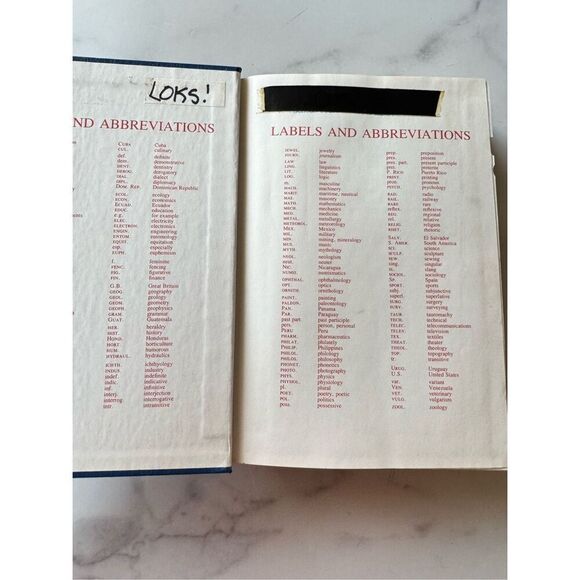 LOKS!
ND ABBREVIATIONS
CUBA Cuba
CUL. culinary
def. definite
dem. demonstrative
DENT. dentistry
DEROG. derogatory
DIAL. dialect
DIPL. diplomacy
DOM. REP. Dominican Republic
ECOL. ecology
ECON. economics
ECUAD. Ecuador
EDUC. education
e.g. for example
ELEC. electricity
ELECTRON. electronics
ENGIN. engineering
ENTOM. entomology
EQUIT. equitation
esp. especially
EUPH. euphemism
f. feminine
FENC. fencing
FIG. figurative
FIN. finance
G.B. Great Britain
GEOG. geography
GEOL. geology
GEOM. geometry
GEOPH. geophysics
GRAM. grammar
GUAT. Guatemala
HER. heraldry
HIST. history
HOND. Honduras
HORT. horticulture
HUM. humorous
HYDRAUL. hydraulics
ICHTH. ichthyology
INDUS. industry
indef. indefinite
indic. indicative
inf. infinitive
interj. interjection
interrog. interrogative
intr. intransitive
LABELS AND ABBREVIATIONS
JEWEL. jewelry
JOURN. journalism
LAW law
LING. linguistics
LIT. literature
LOG. logic
m. masculine
MACH. machinery
MARIT. maritime, nautical
MAS. masonry
MATH. mathematics
MECH. mechanics
MED. medicine
METAL. metallurgy
METEOROL. meteorology
MEX. Mexico
MIL. military
MIN. mining, mineralogy
MUS. music
MYTH. mythology
NEOL. neologism
neut. neuter
NIC. Nicaragua
NUMIS. numismatics
OPHTHAL. ophthalmology
OPT. optics
ORNITH. ornithology
PAINT. painting
PALEON. paleontology
PAN. Panama
PAR. Paraguay
past part. past participle
pers. person, personal
PERU Peru
PHARM. pharmaceutics
PHILAT. philately
PHILIP. Philippines
PHILOL. philology
PHILOS. philosophy
PHONET. phonetics
PHOTO. photography
PHYS. physics
PHYSIOL. physiology
pl. plural
POET. poetry, poetic
POL. politics
poss. possessive
prep. preposition
pres. present
pres. part. present participle
pret. preterit
P. RICO Puerto Rico
PRINT. printing
pron. pronoun
PSYCH. psychology
RAD. radio
RAIL. railway
RARE rare
reflex. reflexive
REG. regional
rel. relative
RELIG. religion
RHET. rhetoric
SALV. El Salvador
S. AMER. South America
SCI. science
SCULP. sculpture
SEW. sewing
sing. singular
SL. slang
SOCIOL. sociology
SP. Spain
SPORT. sports
subj. subjunctive
superl. superlative
SURG. surgery
SURV. surveying
TAUR. tauromachy
TECH. technical
TELEC. telecommunications
TELEV. television
TEX. textiles
THEAT. theater
THEOL. theology
TOP. topography
tr. transitive
URUG. Uruguay
U.S. United States
var. variant
VEN. Venezuela
VET. veterinary
VULG. vulgarism
ZOOL. zoology